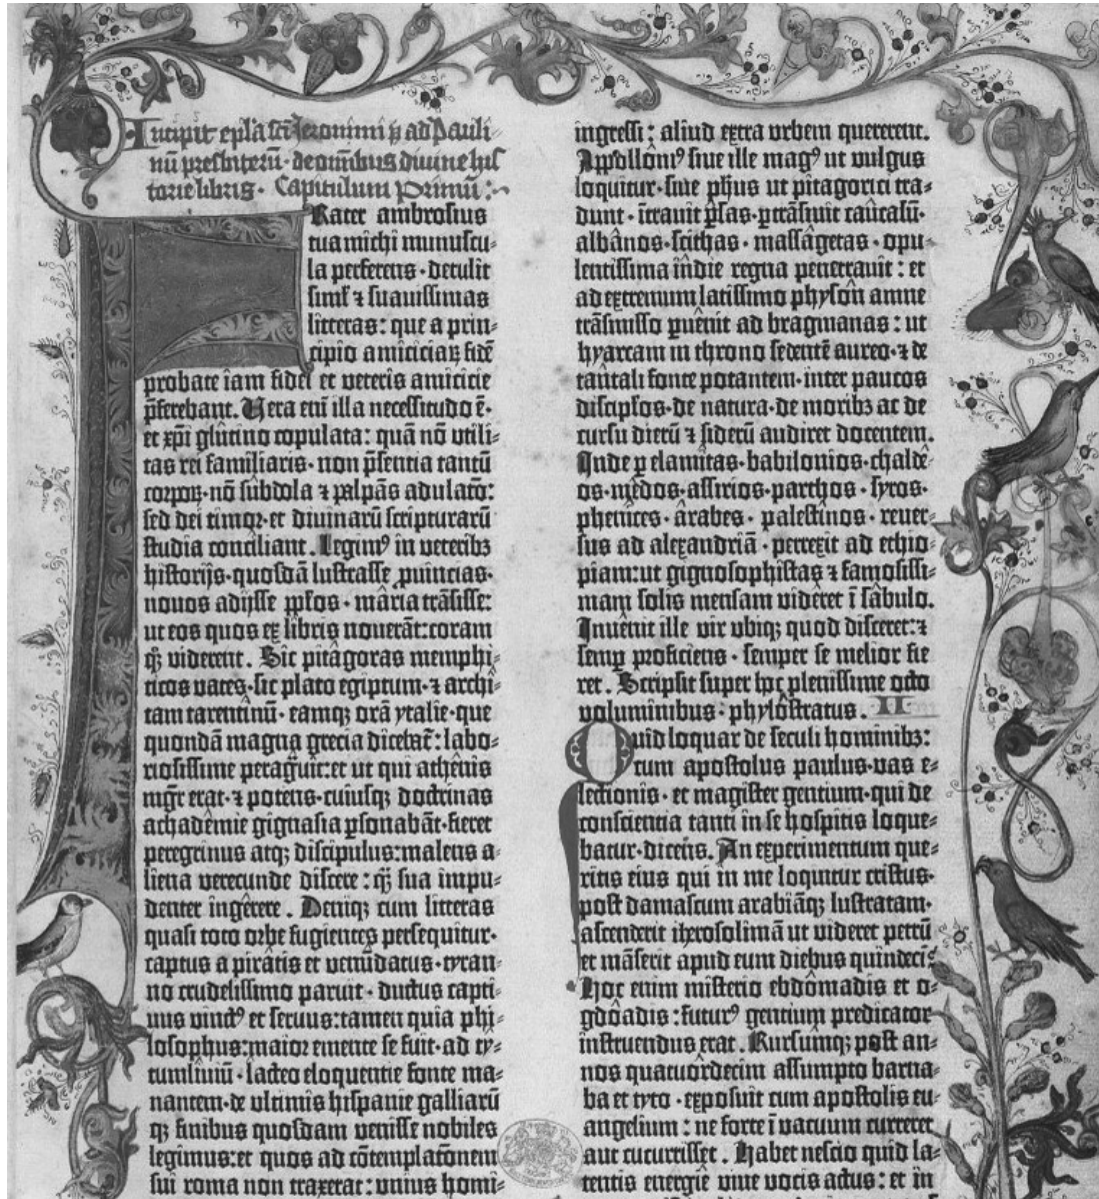 Incipit epl̃a sc̃i Ieronimi p̃ ad Pauli-
nū presbiterū · de om̄ibus divine his
torie libris · Capitulum primū :
Frater ambrosius
tua michi munuscu-
la perferens · detulit
siml̃ ⁊ suavissimas
litteras : que a prin-
cipio amiciciaꝝ fidē
probate iam fidei et veteris amicicie
p̄ferebant. Vera eni illa necessitudo ē ·
et xp̄i glutino copulata : quā nō utili-
tas rei familiaris · non p̄sentia tantū
corpoꝝ · nō subdola ⁊ palpās adulatō :
sed dei timor · et divinarū scripturarū
studia conciliant. Legimꝰ in veteribꝫ
historijs · quosdā lustrasse ꝓvincias ·
novos adijsse pp̄los · maria trāsisse :
ut eos quos ex libris noverāt : coram
qꝫ viderent. Sic pitagoras memphi-
ticos vates · sic plato egiptum · ⁊ archi-
tam tarentinū · eamqꝫ orā ytalie · que
quondā magna grecia dicebat̄ : labo-
riosissime peragravit : et ut qui athenis
mgr̄ erat · ⁊ potens · cuiusqꝫ doctrinas
achademie gignasia ꝑsonabāt · fieret
peregrinus atqꝫ discipulus : malens a-
liena verecunde discere : qꝫ sua impu-
denter ingerere. Deniqꝫ cum litteras
quasi toto orbe fugientes persequitur ·
captus a piratis et venūdatus · tyran-
no crudelissimo paruit · ductus capti-
vus vinctꝰ et servus : tamen quia phi-
losophus : maior emente se fuit · ad ty-
tumliviū · lacteo eloquentie fonte ma-
nantem · de ultimis hispanie galliarū
qꝫ finibus quosdam venisse nobiles
legimus : et quos ad cōtemplationem
sui roma non traxerat : unius homi-
ingressi : aliud extra urbem quererent.
Appolloniꝰ sive ille magꝰ ut vulgus
loquitur · sive ph̄us ut pitagorici tra-
dunt · ītravit p̄sas · ꝑtrāsivit caucasū ·
albanos · scithas · massagetas · opu-
lentissima indie regna penetravit : et
ad extremum latissimo physon amne
trāsmisso ꝑvenit ad bragmanas : ut
hyarcam in throno sedentē aureo · ⁊ de
tantali fonte potantem · inter paucos
discipl̃os · de natura · de moribꝫ ac de
cursu dierū ⁊ siderū audiret docentem.
Inde ꝑ elamitas · babilonios · chalde-
os · medos · assirios · parthos · syros ·
phenices · arabes · palestinos · rever-
sus ad alexandriā · perrexit ad ethio-
piam : ut gignosophistas ⁊ famosissi-
mam solis mensam videret ī sabulo.
Invenit ille vir ubiqꝫ quod disceret : ⁊
semꝑ proficiens · semper se melior fie
ret. Scripsit super hoc plenissime octo
voluminibus · phylostratus. II
Quid loquar de seculi hominibꝫ :
cum apostolus paulus · vas e-
lectionis · et magister gentium · qui de
conscientia tanti in se hospitis loque-
batur · dicens. An experimentum que-
ritis eius qui in me loquitur cristus ·
post damascum arabiāqꝫ lustratam ·
ascenderit iherosolimā ut videret petrū
et māserit apud eum diebus quindecī
Hoc enim misterio ebdomadis et o-
gdoadis : futurꝰ gentium predicator
instruendus erat. Rursumqꝫ post an-
nos quatuordecim assumpto barna-
ba et tyto · exposuit cum apostolis eu-
angelium : ne forte ī vacuum curreret
aut cucurrisset. Habet nescio quid la-
tentis energie vive vocis actus : et in